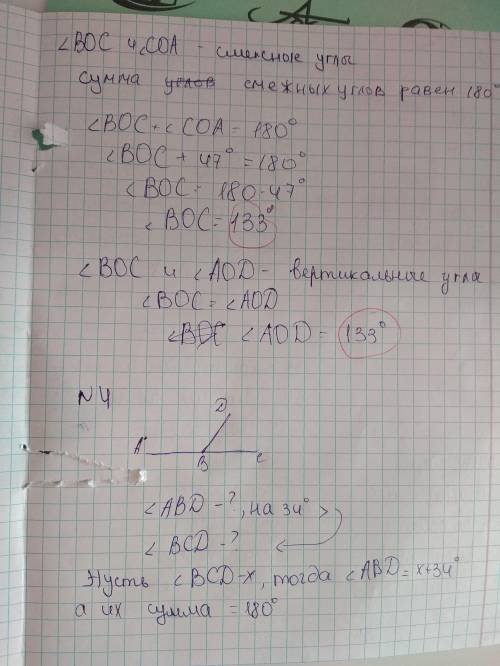 ∠BOC и ∠COA - смежные углы
сумма углов смежных углов равен 180°
∠BOC + ∠COA = 180°
∠BOC + 47° = 180°
∠BOC = 180-47°
∠BOC = 133°
∠BOC и ∠AOD - вертикальные угла
∠BOC = ∠AOD
∠BOC ∠AOD = 133°
N4
D
A B C
∠ABD - ?, на 34° >
∠BCD - ?
Пусть ∠BCD = x, тогда ∠ABD = x+34°
а их сумма = 180°